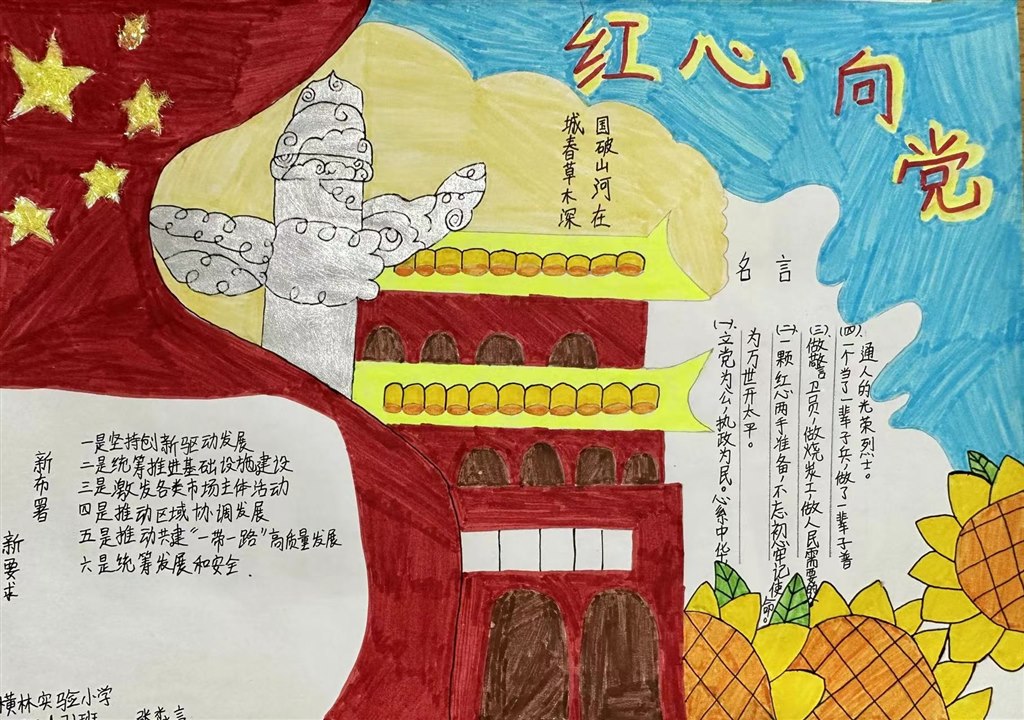 红心向党
国破山河在
城春草木深
名言
(一)、立党为公，执政为民。心系中华
为万世开太平。
(二)一颗红心两手准备，不忘初心牢记使命。
(三)、做警卫员，做烧工做人民需要的
(四)一个当了一辈子兵，做了一辈子善
通人的光荣烈士。
新布署
新要求
一是坚持创新驱动发展
二是统筹推进基础设施建设
三是激发各类市场主体活动
四是推动区域协调发展
五是推动共建“一带一路”高质量发展
六是统筹发展和安全.
横林实验小学
班 张言